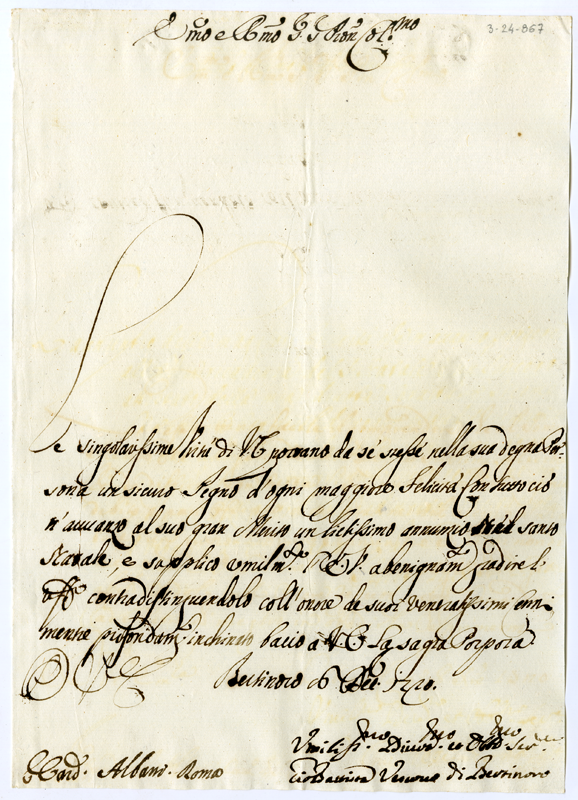 3-24-867
Emo e Rmo S. S. Pron Colmo
Le singolarissime Virtù di V.E. provano da sè stesse nella sua degna Per-
sona un sicuro Pegno d'ogni maggiore Felicità. Con tutto ciò
n'avvanzo al suo gran Merito un lietissimo annunzio nel santo
Natale, e supplico umilm.te V.E. a benignam.te gradire l'
uff.o contradistinguendolo coll'onore de suoi veneratissimi Cenni,
mentre profondam.te inchinato bacio a V.E. la sagra Porpora
Bertinoro 6 Dec. 1720.
Umiliss.mo Divo.mo ed Obb.mo Ser.re
S. Card. Albani. Roma
Gio: Battista Vescovo di Bertinoro